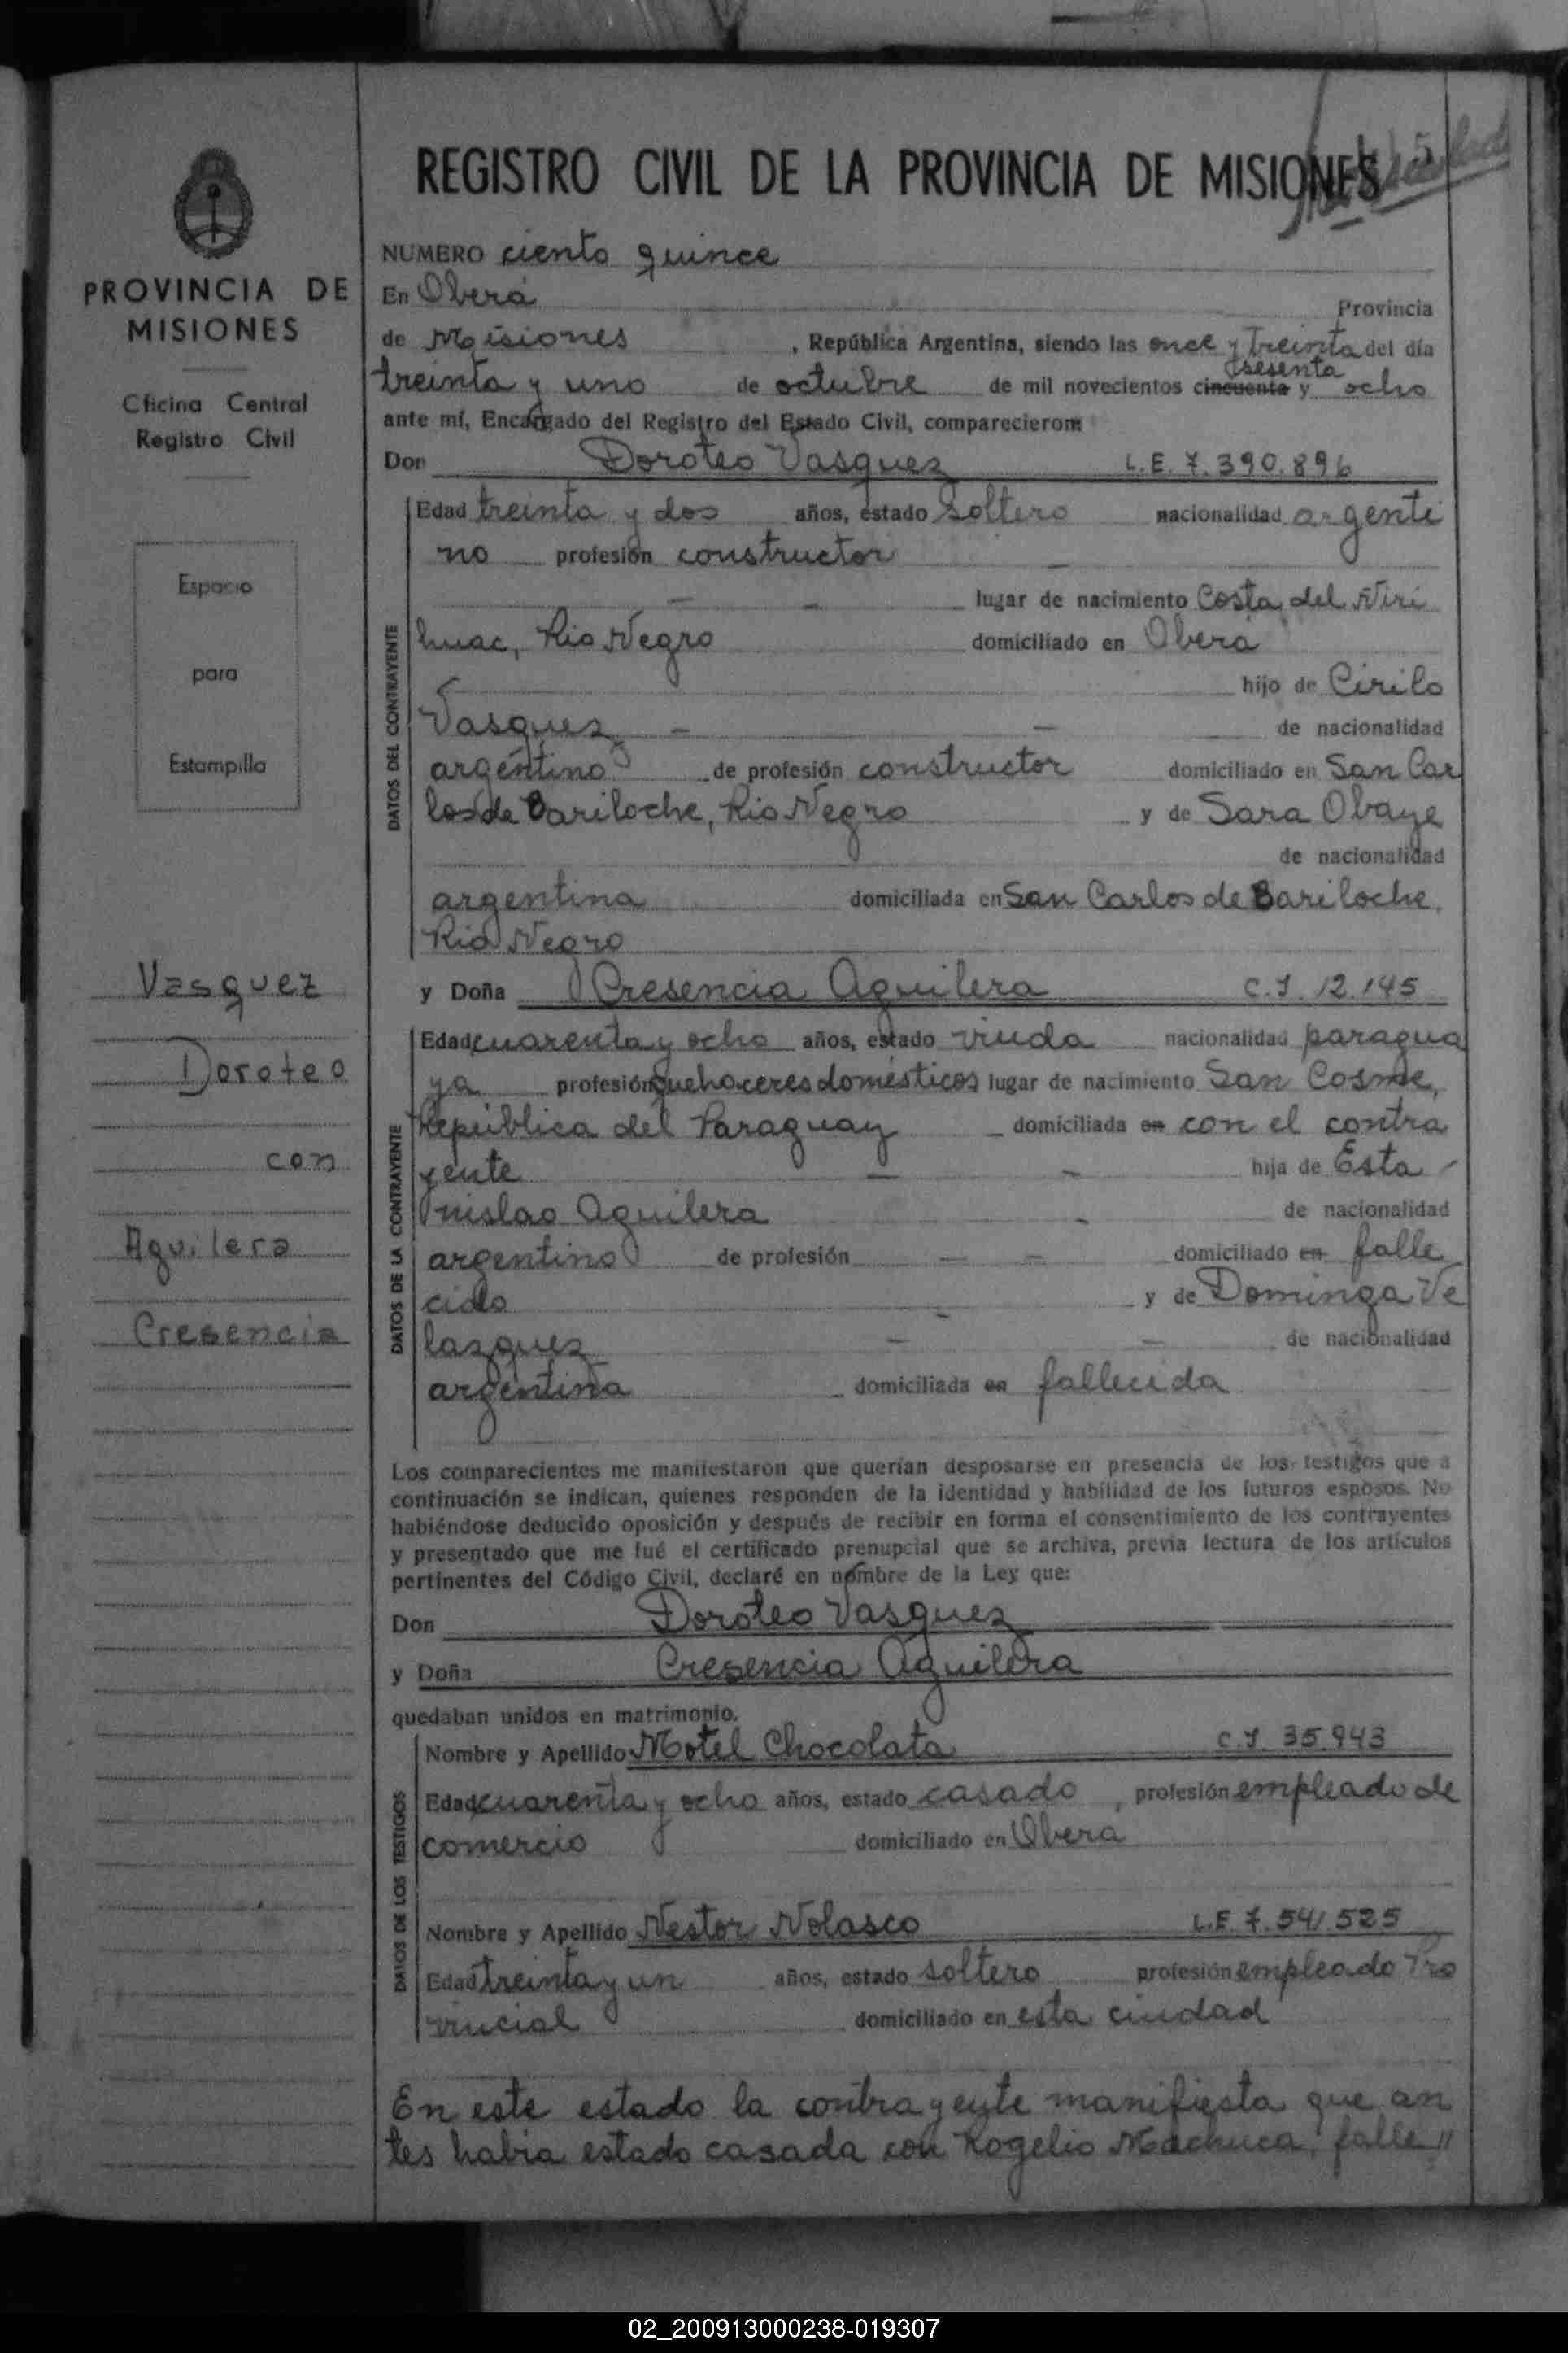 REGISTRO CIVIL DE LA PROVINCIA DE MISIONES
NUMERO ciento quince
En Oberá
Provincia
de Misiones , República Argentina, siendo las once y treinta del día
sesenta
treinta y uno de octubre de mil novecientos cincuenta y ocho
ante mí, Encargado del Registro del Estado Civil, comparecieron:
Don Doroteo Vasquez L.E. 7.390.896
DATOS DEL CONTRAYENTE
Edad treinta y dos años, estado soltero nacionalidad argenti
no profesión constructor
lugar de nacimiento Costa del Ñiri
huac, Rio Negro domiciliado en Oberá
hijo de Cirilo
Vasquez de nacionalidad
argentino de profesión constructor domiciliado en San Car
los de Bariloche, Rio Negro y de Sara Obaye
de nacionalidad
argentina domiciliada en San Carlos de Bariloche,
Rio Negro
y Doña Cresencia Aguilera C.I. 12.145
DATOS DE LA CONTRAYENTE
Edad cuarenta y ocho años, estado viuda nacionalidad paragua
ya profesión quehaceres domésticos lugar de nacimiento San Cosme,
República del Paraguay domiciliada en con el contra
yente hija de Esta
nislao Aguilera de nacionalidad
argentino de profesión domiciliado en falle
cido y de Dominga Ve
lazquez de nacionalidad
argentina domiciliada en fallecida
Los comparecientes me manifestaron que querían desposarse en presencia de los testigos que a
continuación se indican, quienes responden de la identidad y habilidad de los futuros esposos. No
habiéndose deducido oposición y después de recibir en forma el consentimiento de los contrayentes
y presentado que me fué el certificado prenupcial que se archiva, previa lectura de los artículos
pertinentes del Código Civil, declaré en nombre de la Ley que:
Don Doroteo Vasquez
y Doña Cresencia Aguilera
quedaban unidos en matrimonio.
DATOS DE LOS TESTIGOS
Nombre y Apellido Motel Chocolata C.I. 35.943
Edad cuarenta y ocho años, estado casado , profesión empleado de
comercio domiciliado en Oberá
Nombre y Apellido Nestor Nolasco L.E. 7.541.525
Edad treinta y un años, estado soltero profesión empleado Pro
vincial domiciliado en esta ciudad
En este estado la contrayente manifiesta que an
tes habia estado casada con Rogelio Machuca, falle"
PROVINCIA DE
MISIONES
Oficina Central
Registro Civil
Espacio
para
Estampilla
Vasquez
Doroteo
con
Aguilera
Cresencia
02_200913000238-019307